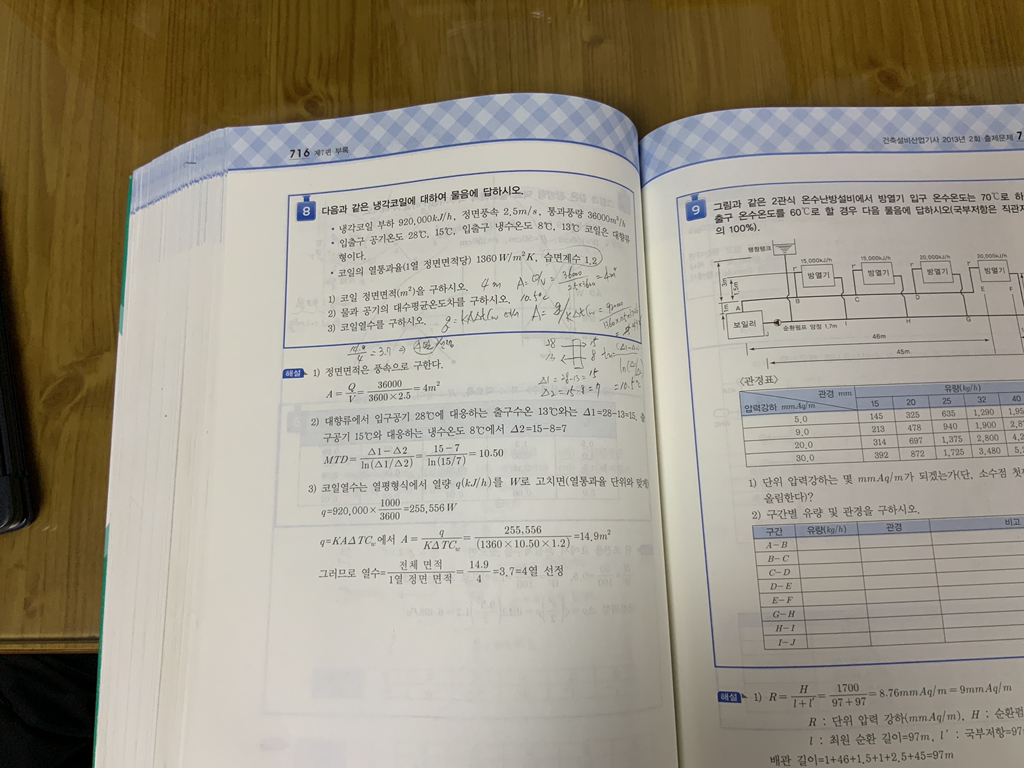 716 제7편 부록
8 다음과 같은 냉각코일에 대하여 물음에 답하시오.
• 냉각코일 부하 920,000kJ/h, 정면풍속 2.5m/s, 통과풍량 36000m³/h
• 입출구 공기온도 28℃, 15℃, 입출구 냉수온도 8℃, 13℃ 코일은 대향류
형이다.
• 코일의 열통과율(1열 정면면적당) 1360W/m²K, 습면계수 1.2
1) 코일 정면면적(m²)을 구하시오. 4m A=Q/V=
2) 물과 공기의 대수평균온도차를 구하시오. 10.5℃
3) 코일열수를 구하시오.
28 15
13 8
Δ1=28-13=15
Δ2=15-8=7
=10.5℃
해설 1) 정면면적은 풍속으로 구한다.
A=Q/V=36000/(3600×2.5)=4m²
2) 대향류에서 입구공기 28℃에 대응하는 출구수온 13℃와는 Δ1=28-13=15,
구공기 15℃와 대응하는 냉수온도 8℃에서 Δ2=15-8=7
MTD=(Δ1-Δ2)/ln(Δ1/Δ2)=(15-7)/ln(15/7)=10.50
3) 코일열수는 열평형식에서 열량 q(kJ/h)를 W로 고치면(열통과율 단위와 맞게)
q=920,000×1000/3600=255,556W
q=KAΔTCw에서 A=q/(KΔTCw)=255,556/(1360×10.50×1.2)=14.9m²
그러므로 열수=전체 면적/1열 정면 면적=14.9/4=3.7=4열 선정
건축설비산업기사 2013년 2회 출제문제 7
9 그림과 같은 2관식 온수난방설비에서 방열기 입구 온수온도는 70℃로 하
출구 온수온도를 60℃로 할 경우 다음 물음에 답하시오(국부저항은 직관저
의 100%).
팽창탱크
15,000kJ/h 15,000kJ/h 20,000kJ/h 20,000kJ/h
방열기 방열기 방열기 방열기
A B C D E F
보일러 순환펌프 양정 1.7m I H G
46m
45m
〈관경표〉
관경 mm 유량(kg/h)
압력강하 mmAq/m 15 20 25 32 40
5.0 145 325 635 1,290
9.0 213 478 940 1,900
20.0 314 697 1,375 2,800
30.0 392 872 1,725 3,480
1) 단위 압력강하는 몇 mmAq/m가 되겠는가(단, 소수점 첫
올림한다)?
2) 구간별 유량 및 관경을 구하시오.
구간 유량(kg/h) 관경 비고
A-B
B-C
C-D
D-E
E-F
F-G
G-H
H-I
I-J
해설 1) R=H/(l+l')=1700/(97+97)=8.76mmAq/m=9mmAq/m
R : 단위 압력 강하(mmAq/m), H : 순환펌
l : 최원 순환 길이=97m, l' : 국부저항=97
배관 길이=1+46+1.5+1+2.5+45=97m